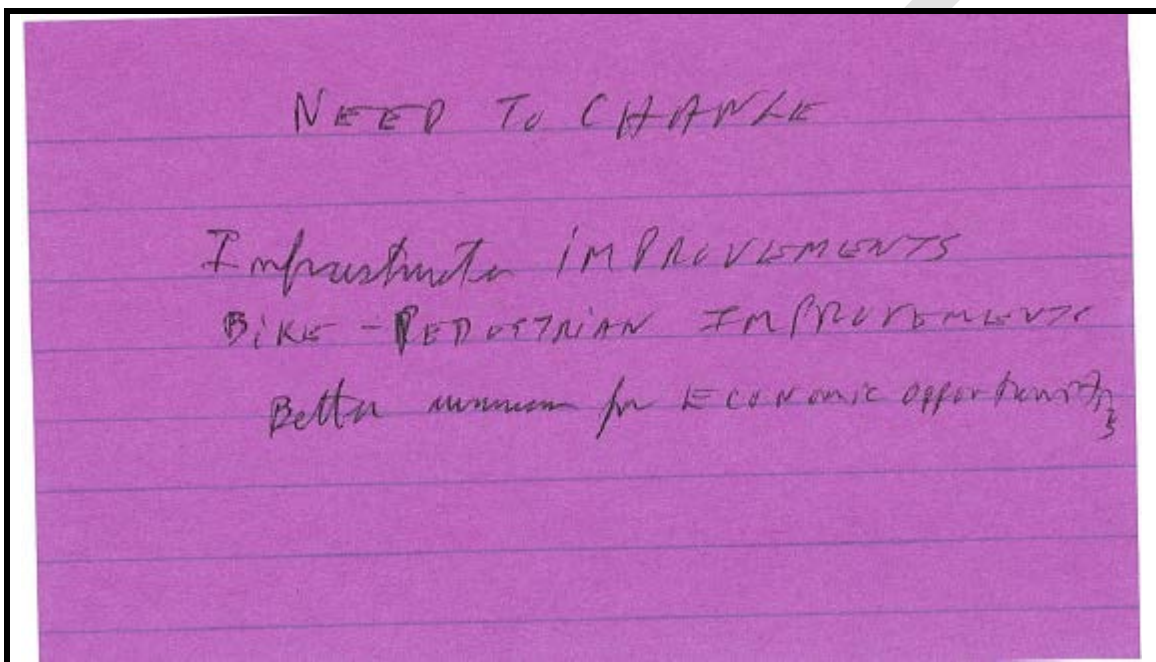 NEED TO CHANGE
Infrastructure IMPROVEMENTS
BIKE - PEDESTRIAN IMPROVEMENTS
Better for ECONOMIC opportunities